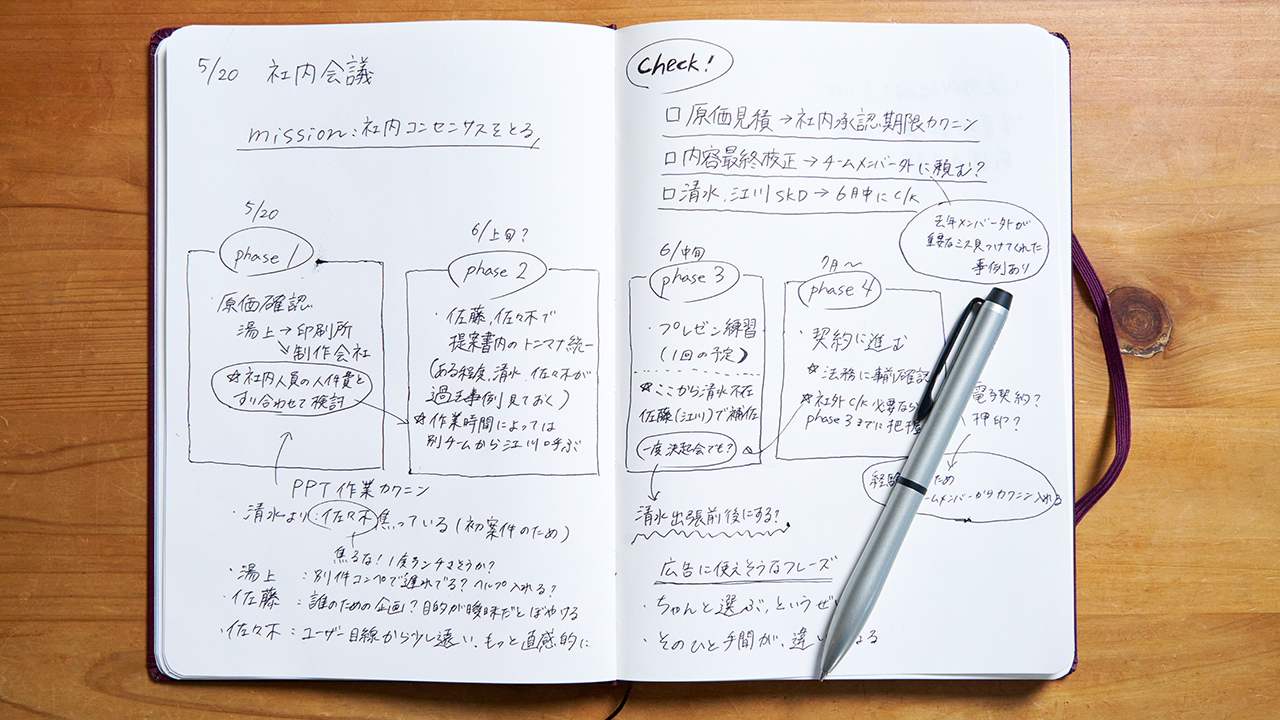 5/20 社内会議
mission:社内コンセンサスをとる
5/20
phase 1
・原価確認
湯上→印刷所
制作会社
☆社内人員の人件費と
すり合わせて検討
PPT作業カクニン
6/上旬?
phase 2
・佐藤,佐々木で
提案書内のトンマナ統一
(ある程度,清水,佐々木が
過去事例見ておく)
☆作業時間によっては
別チームから江川呼ぶ
・清水より:佐々木焦っている(初案件のため)
焦るな!1度ランチでもどうか?
・湯上:別件コンペで遅れでる?ヘルプ入れる?
・佐藤:誰のための企画?目的が曖昧だとぼやける
・佐々木:ユーザー目線から少し遠い、もっと直感的に
Check!
□原価見積→社内承認期限カクニン
□内容最終校正→チームメンバー外に頼む?
□清水,江川SKD→6月中にC/K
去年メンバー外が
重要なミス見つけてくれた
事例あり
6/中旬
phase 3
・プレゼン練習
(1回の予定)
☆ここから清水不在
佐藤(江川)で補佐
一度決起会でも?
清水出張前後にする?
7月〜
phase 4
・契約に進む
☆法務に事前確認
☆社外C/K必要なら
phase3までに把握
電子契約?
押印?
ため
ームメンバーからカクニン入れる
広告に使えそうなフレーズ
・ちゃんと選ぶ、という
・そのひと手間が、違
なる